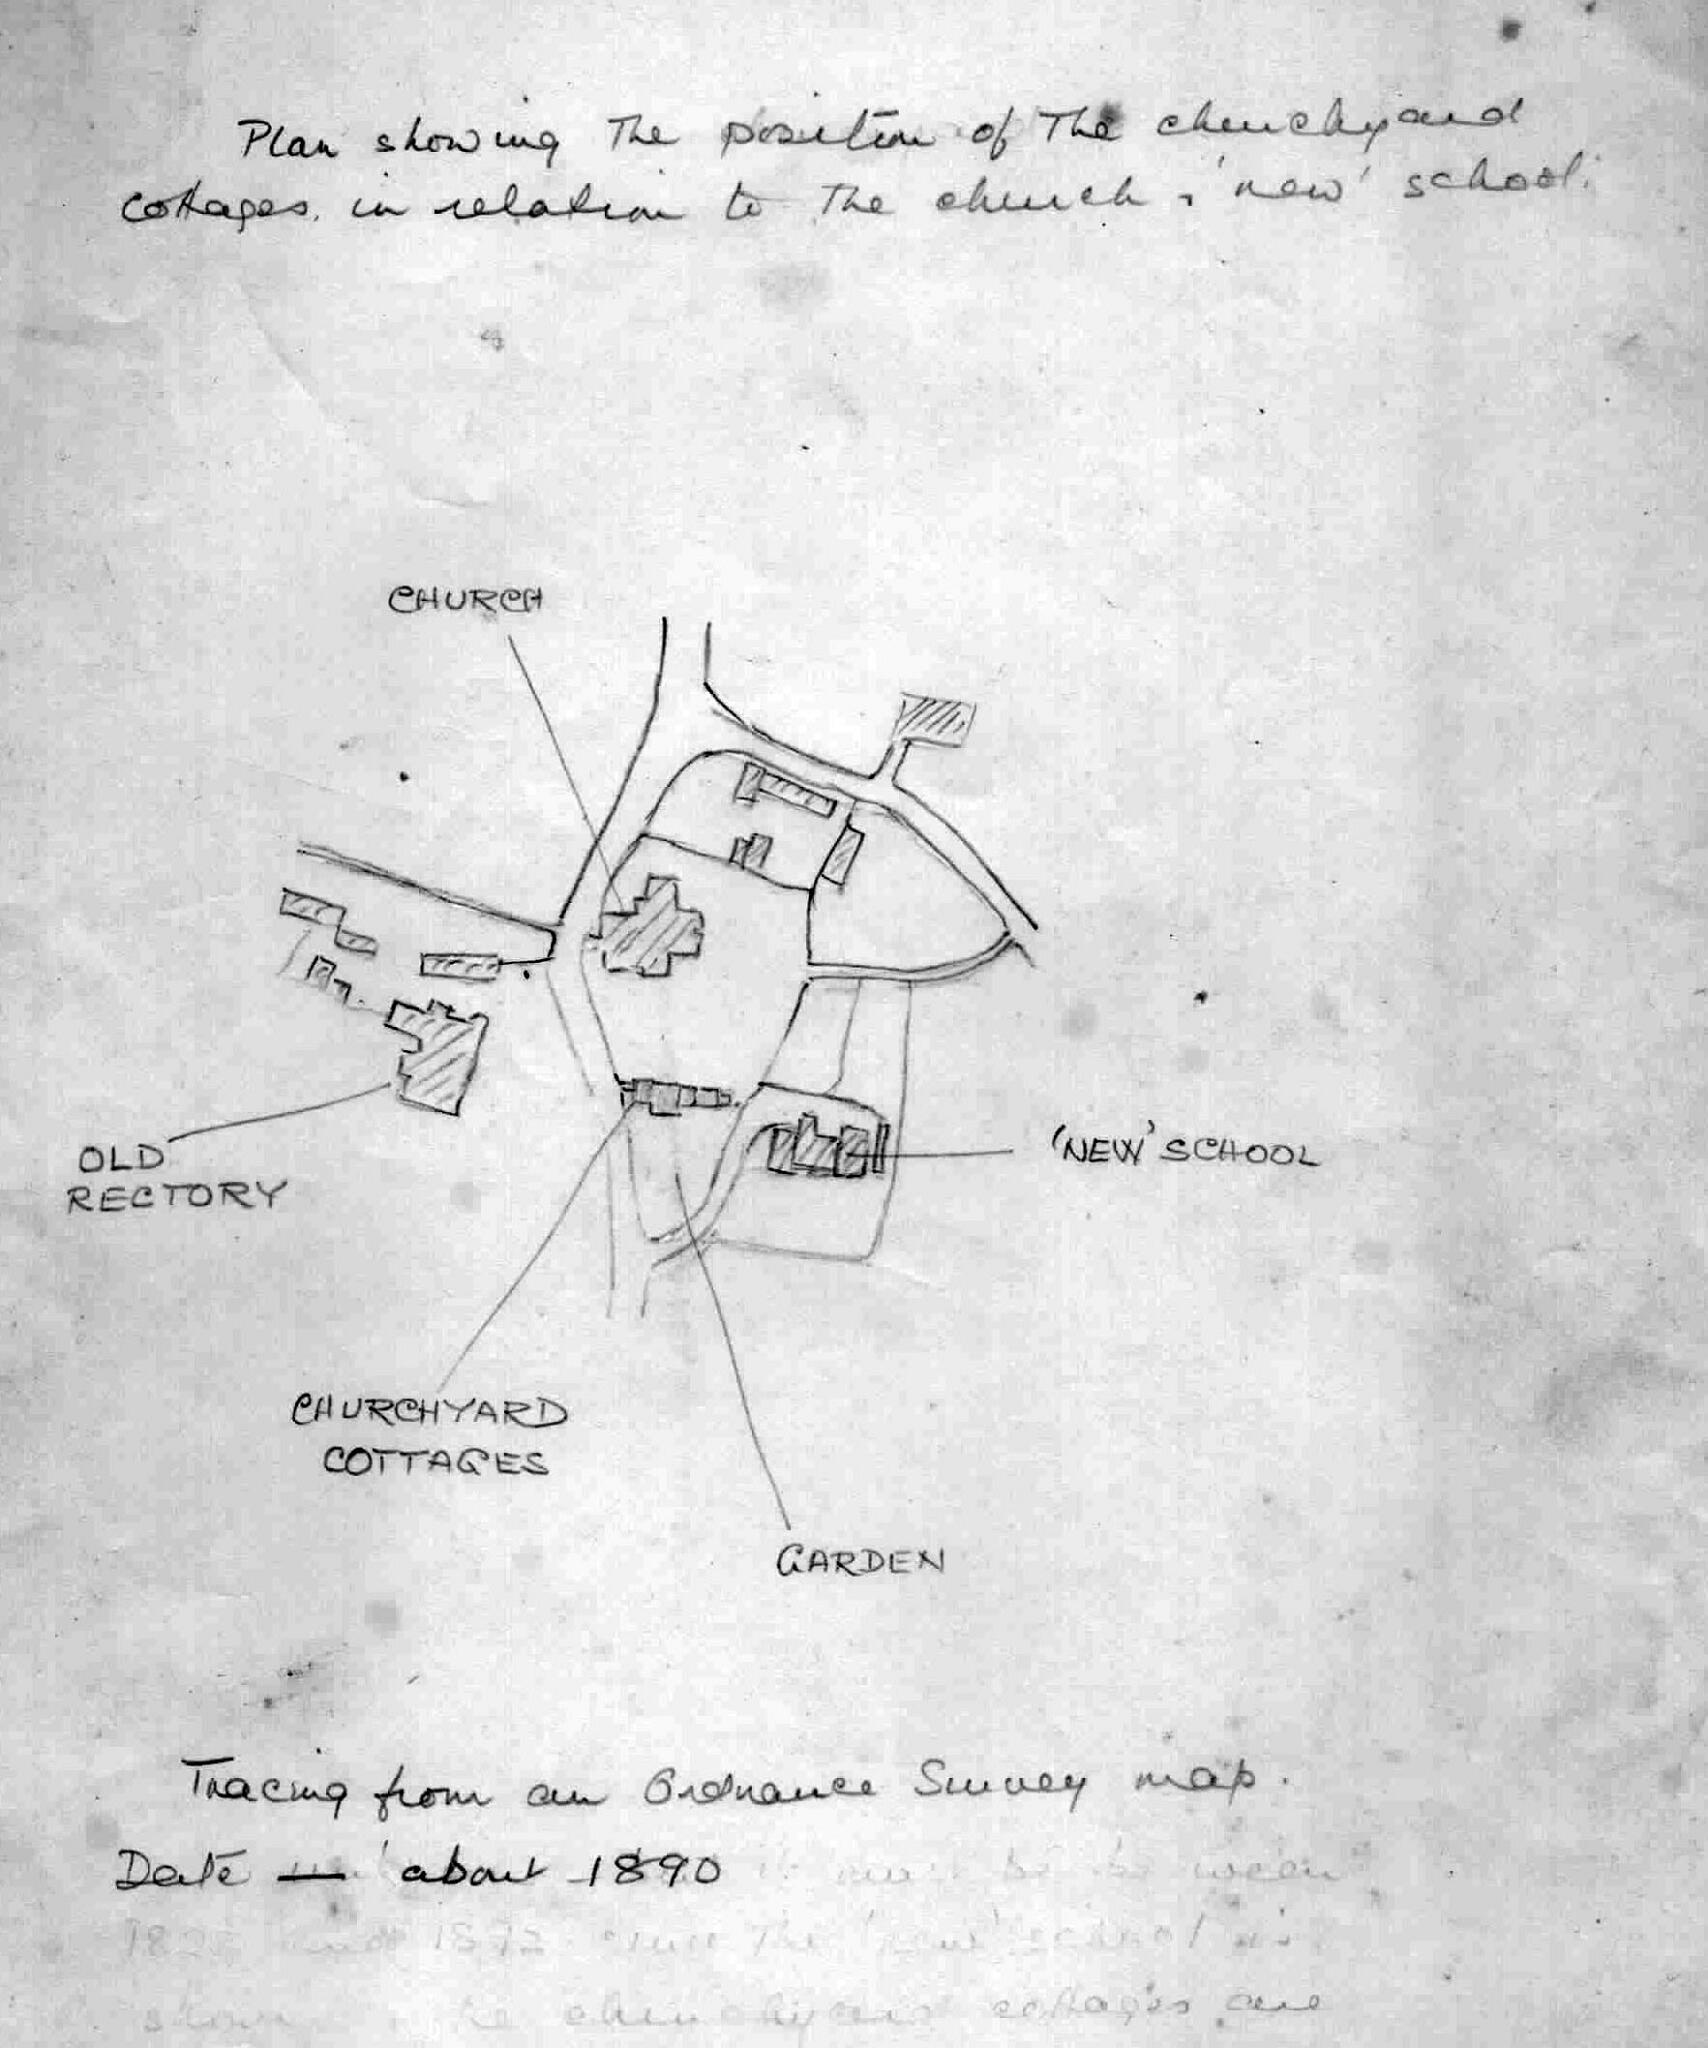 Plan showing The position of The churchyard
cottages. in relation to The church & 'new' school.
CHURCH
OLD
RECTORY
'NEW' SCHOOL
CHURCHYARD
COTTAGES
GARDEN
Tracing from an Ordnance Survey map.
Date — about 1890 it must be between
and 1892 since The 'new' school is
shown churchyard cottages are